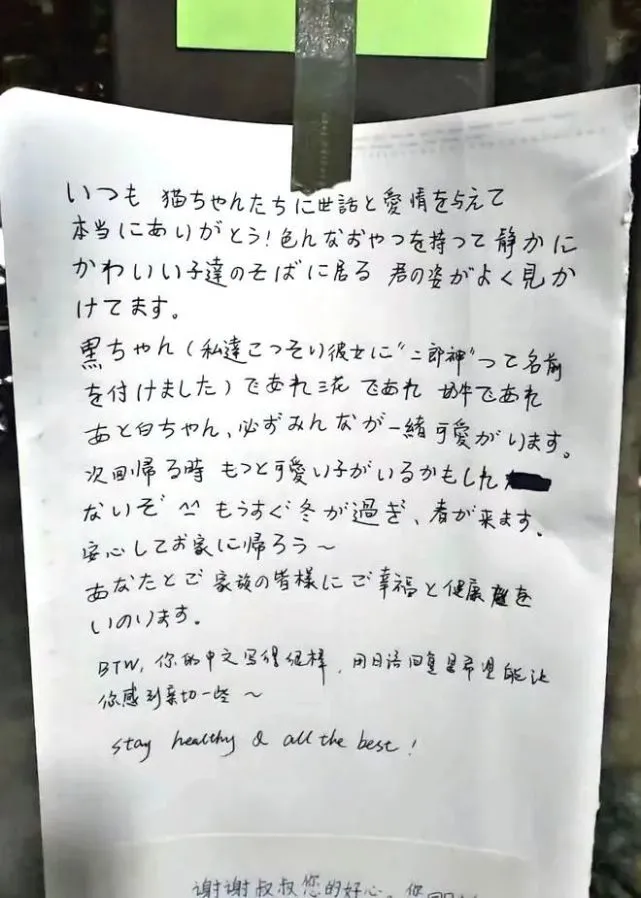 いつも 猫ちゃんたちに世話と愛情を与えて
本当にありがとう！色んなおやつを持って静かに
かわいい子達のそばに居る 君の姿がよく見か
けてます。
黒ちゃん（私達こっそり彼女に“二郎神”って名前
を付けました）であれ 三花 であれ 奶牛であれ
あと白ちゃん、必ずみんなが一緒可愛がります。
次回帰る時 もっと可愛い子がいるかもしれ
ないぞ ^^ もうすぐ冬が過ぎ、春が来ます。
安心してお家に帰ろう～
あなたとご家族の皆様にご幸福と健康を
いのります。
BTW, 你的中文写得很棒，用日语回复是希望能让
你感到亲切一些～
stay healthy & all the best！
谢谢叔叔您的好心。您